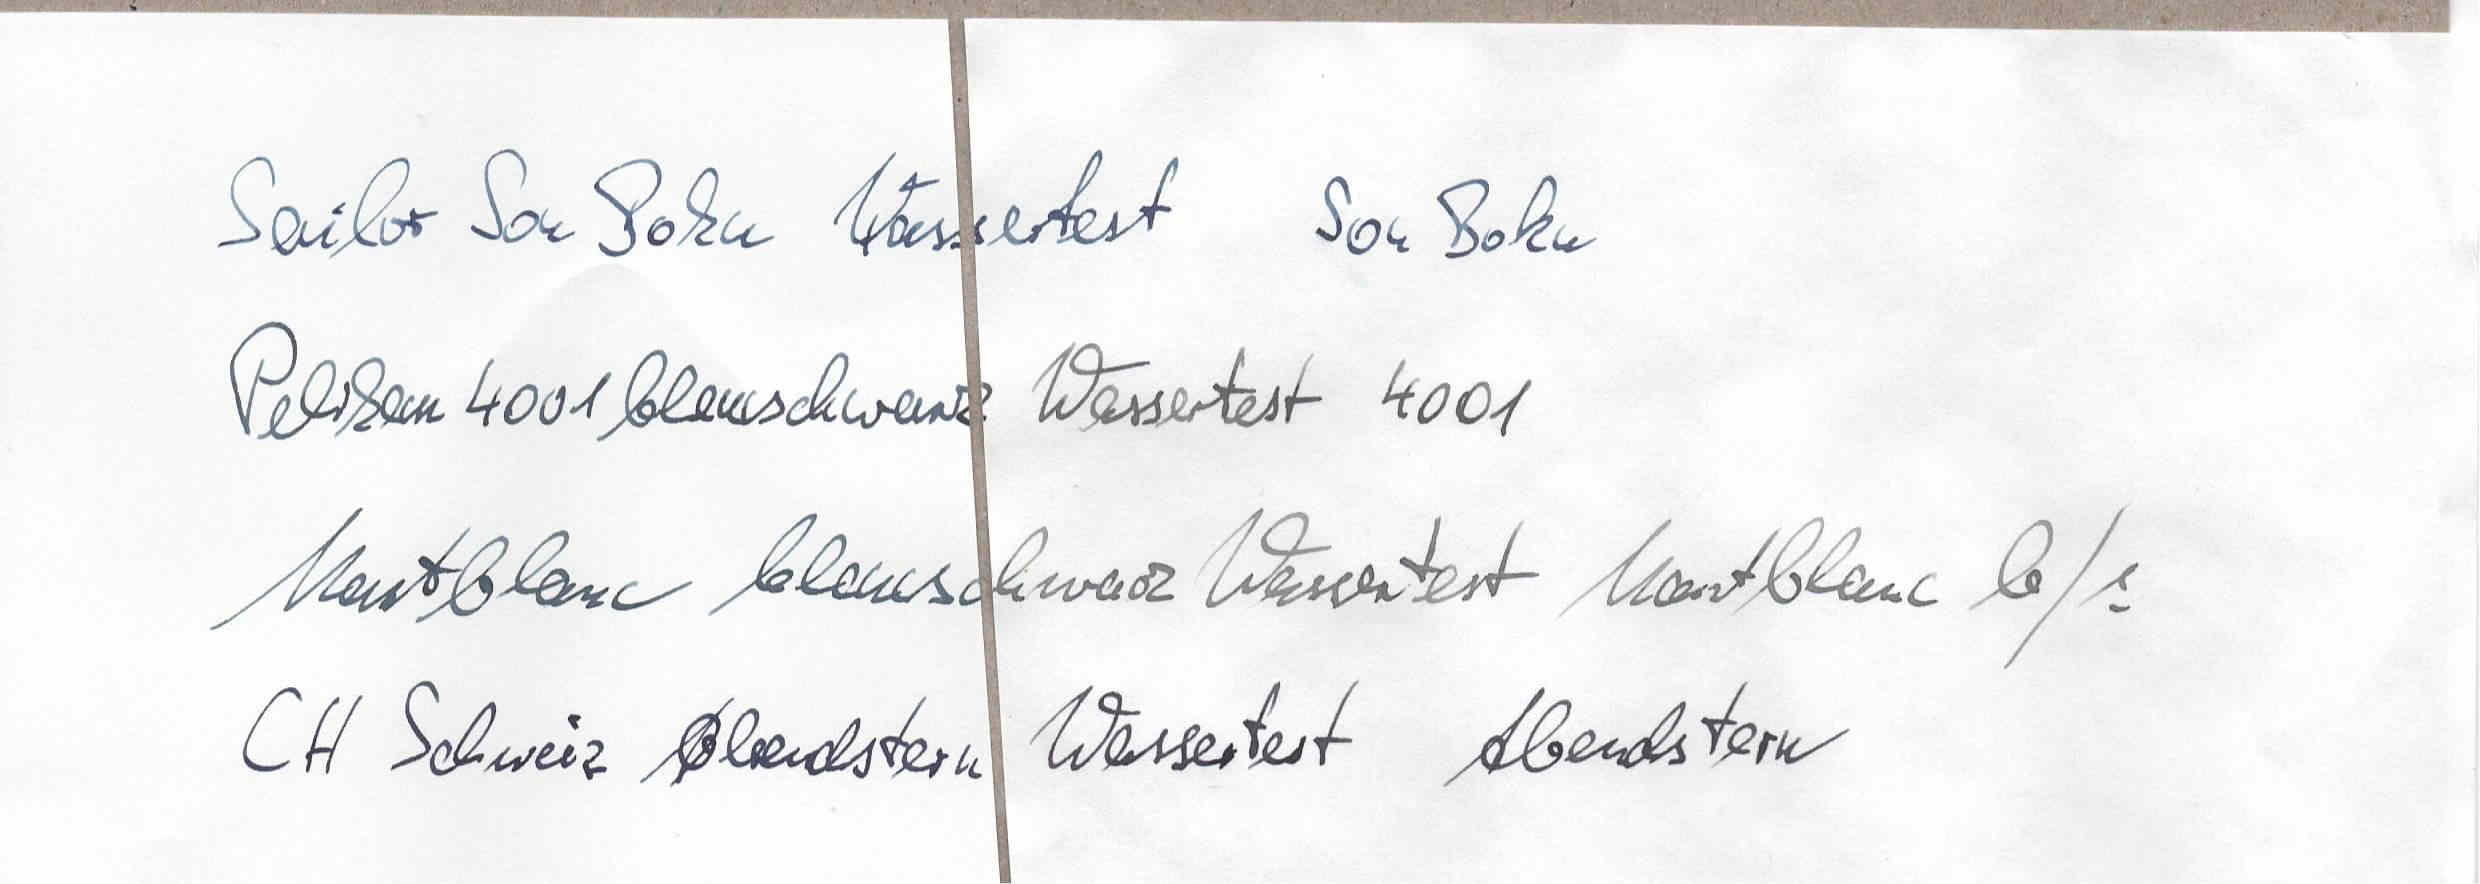 Sailor Sou Boku Wassertest Sou Boku
Pelikan 4001 blauschwarz Wassertest 4001
Montblanc blauschwarz Wassertest Montblanc b/s
CH Schweiz Abendstern Wassertest Abendstern